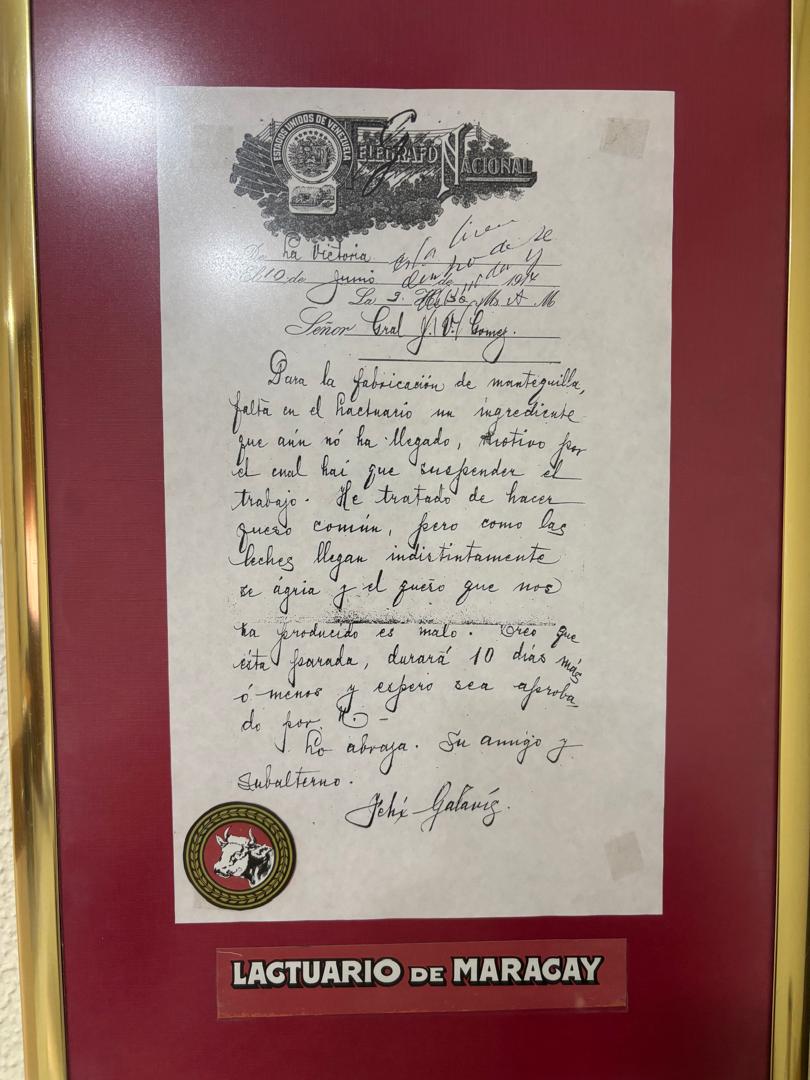 ESTADOS UNIDOS DE VENEZUELA
TELEGRAFO NACIONAL
De La Victoria
El 10 de Junio de 19
La 3. Hs. Ms A M
Señor Gral J. V. Gómez.
Para la fabricación de mantequilla,
falta en el Lactuario un ingrediente
que aún nó ha llegado, motivo por
el cual hai que suspender el
trabajo. He tratado de hacer
queso común, pero como las
leches llegan indistintamente
se ágria y el queso que nos
ha producido es malo. Creo que
ésta parada, durará 10 días más
ó menos y espero sea aproba
do por U. -
Lo abraza. Su amigo y
subalterno.
Felix Galavís.
LACTUARIO DE MARACAY